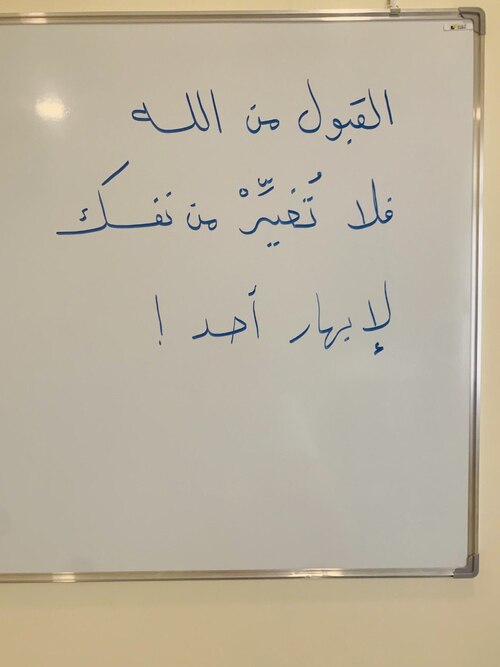 القبول من الله
فلا تُغيِّرْ من نفسك
لإبهار أحد !